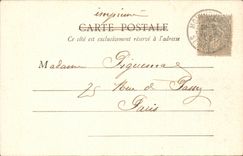 imprimé
CARTE POSTALE
Ce côté est exclusivement réservé à l'adresse
Madame Piquemal
25 Rue de Passy
Paris